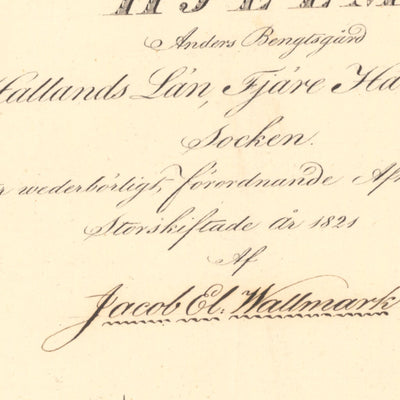 Anders Bengtsgård
Hallands Län, Fjäre Ha
Socken.
wederbörligt, förordnande Afm
Storskiftade år 1821
Af
Jacob El. Wallmark